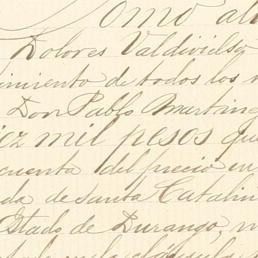 Como al
Dolores Valdivielso
imiento de todos los
Don Pablo Martine
iez mil pesos que
cuenta del precio en
da de Santa Catalin
Estado de Durango,